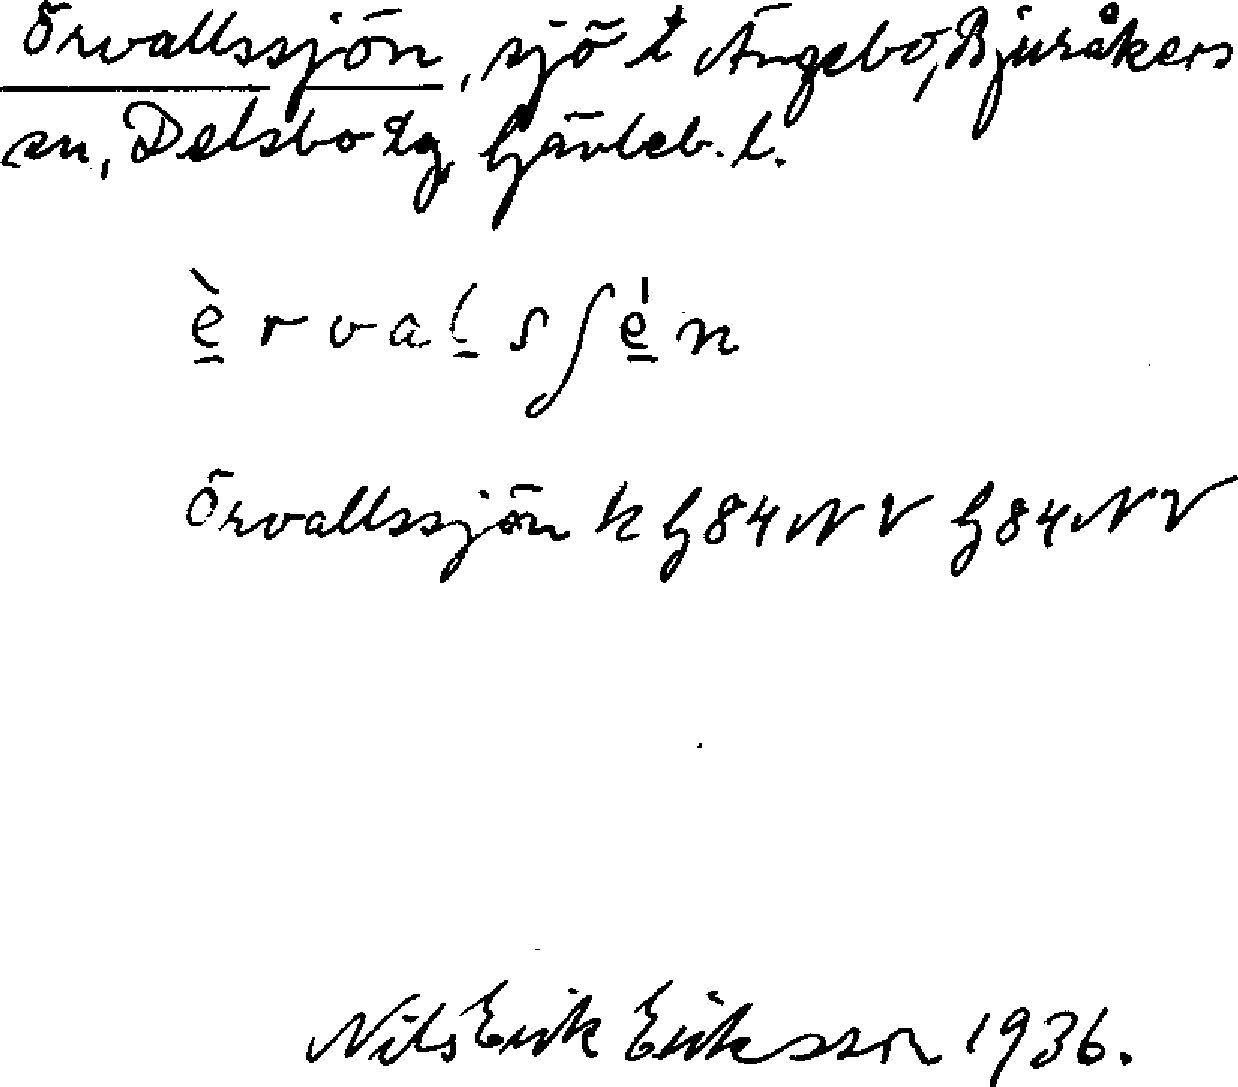 Örvallssjön, sjö t Ängebo, Bjuråkers
sn, Delsbo tg, Gävleb. l.
è̠ r v a l̠ s ʃ e̠̍ n
Örvallssjön k G84NV G84NV
Nils Erik Eriksson 1936.